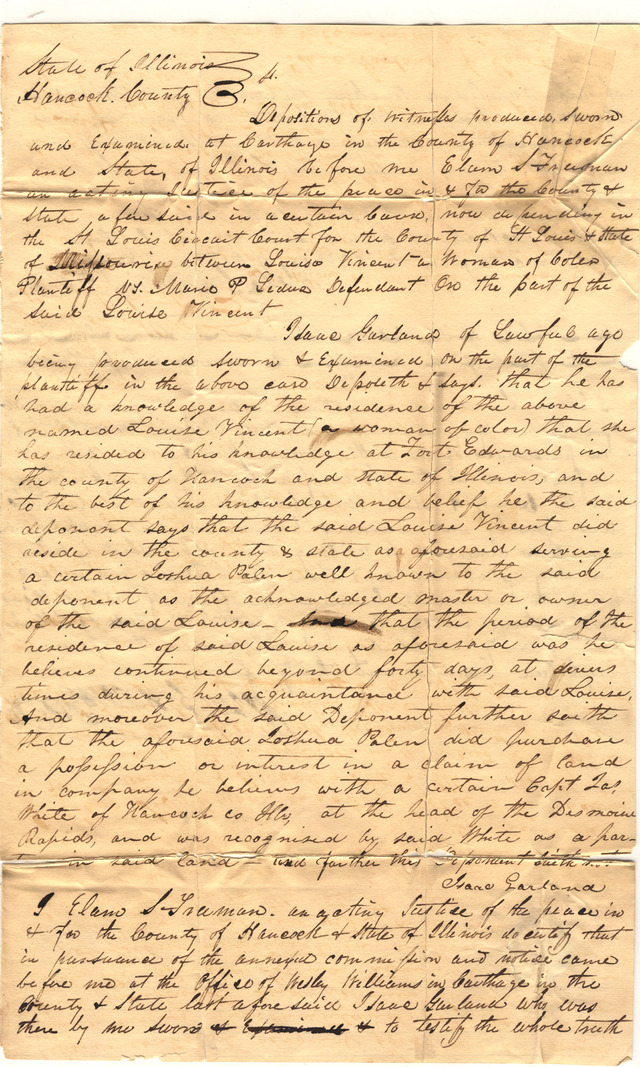 State of Illinois
Hancock County } ss.
Depositions of witness produced, sworn
and Examined at Carthage in the County of Hancock
and State, of Illinois before me Elam S Freeman
an acting Justice of the peace in & For the County &
State afore said in a certain Cause, now depending in
the St Louis Circuit Court For the County of St Louis & State
of between Louise Vincent a Woman of Color
Plantiff vs. Marie P Leduc Defendant On the part of the
said Louise Vincent
Isaac Garland of Lawful age
being produced sworn & Examined on the part of the
plantiff in the above case Deposeth & says. that he has
had a knowledge of the residence of the above
named Louise Vincent (a woman of color) that she
has resided to his knowledge at Fort Edwards in
the county of Hancock and state of Illinois, and
to the best of his knowledge and belief he the said
deponent says that the said Louise Vincent did
reside in the county & state as aforesaid serving
a certain Joshua Palen well known to the said
deponent as the acknowledged master or owner
of the said Louise – And that the period of the
residence of said Louise as aforesaid was he
believes continued beyond forty days, at divers
times during his acquaintance with said Louise,
And moreover the said Deponent further saith
that the aforesaid Joshua Palen did purchase
a possession or interest in a claim of land
in company he believes with a certain Capt Jas,
White of Hancock co. Ills, at the head of the Desmoine
Rapids, and was recognised by said White as a par
in said land – and further this Deponent saith not
Isaac Garland
I Elam S Freeman. an acting Justice of the peace in
& For the County of Hancock & State of Illinois do certify that
in pursuance of the annexed commission and notise came
before me at the Office of Wesley Williams in Carthage in the
County & State last afore said Isaac Garland who was
there by me sworn & Examined & to testify the whole truth